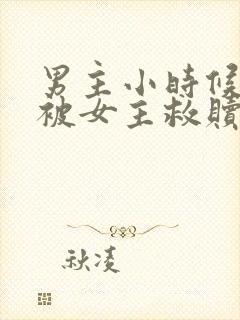 男主小時候
被女主救贖
秋凌